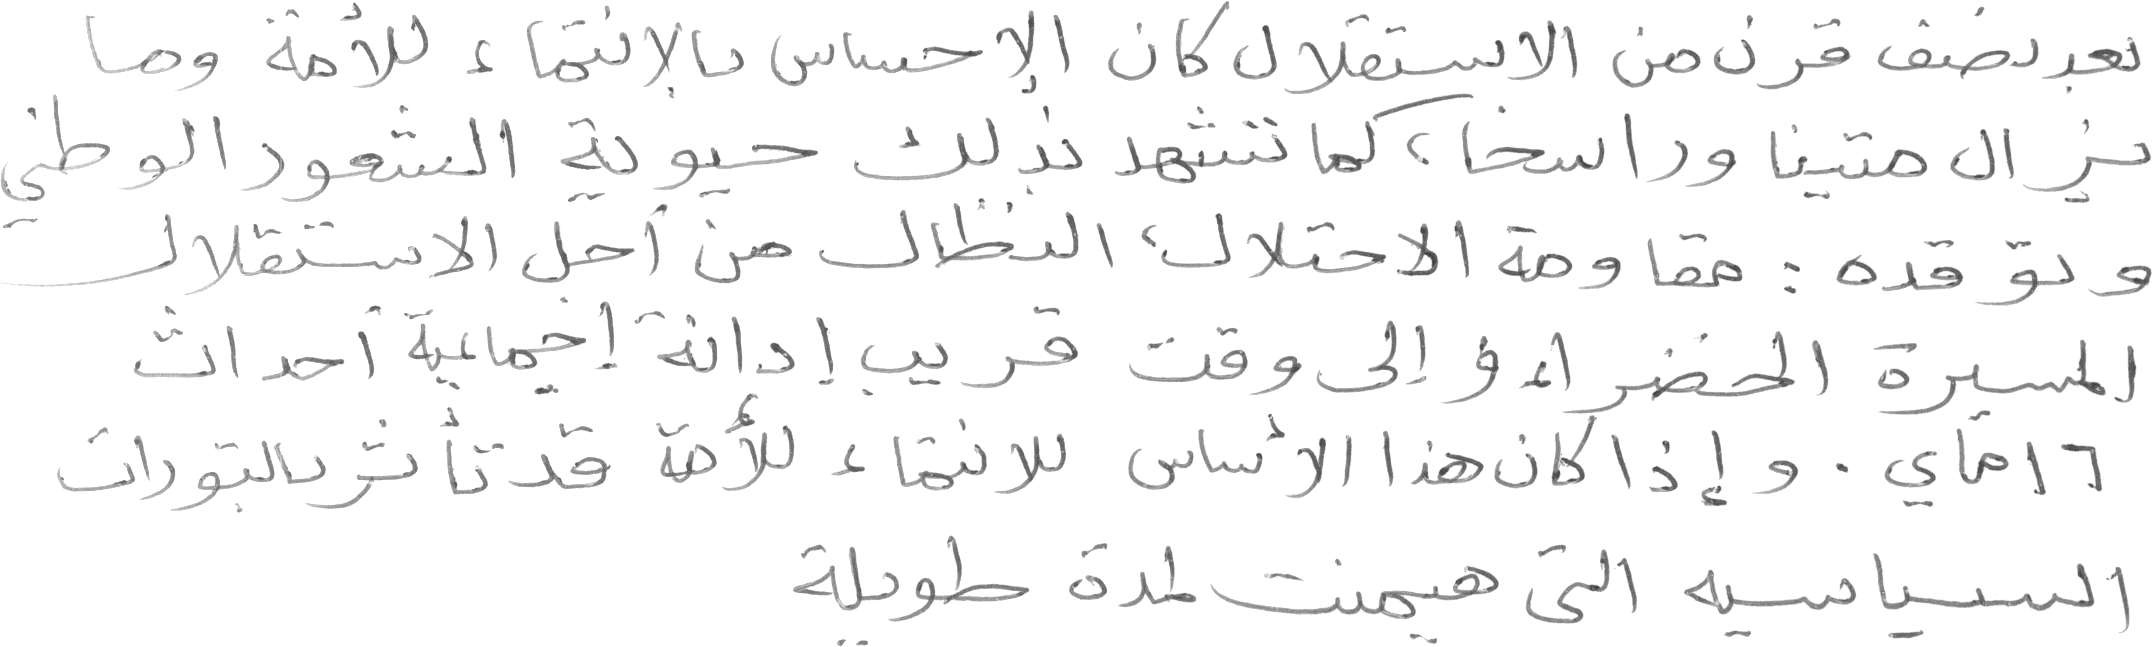 بعد نصف قرن من الاستقلال كان الإحساس بالإنتماء للأمة وما
يزال متينا وراسخا، كما تشهد بذلك حيوية الشعور الوطني
وتوقده : مقاومة الاحتلال، النظال من أجل الاستقلال
المسيرة الخضراء و إلى وقت قريب إدانة إجماعية أحداث
١٦ ماي . و إذا كان هذا الأساس للانتماء للأمة قد تأثر بالتورات
السياسيه التي هيمنت لمدة طويلة